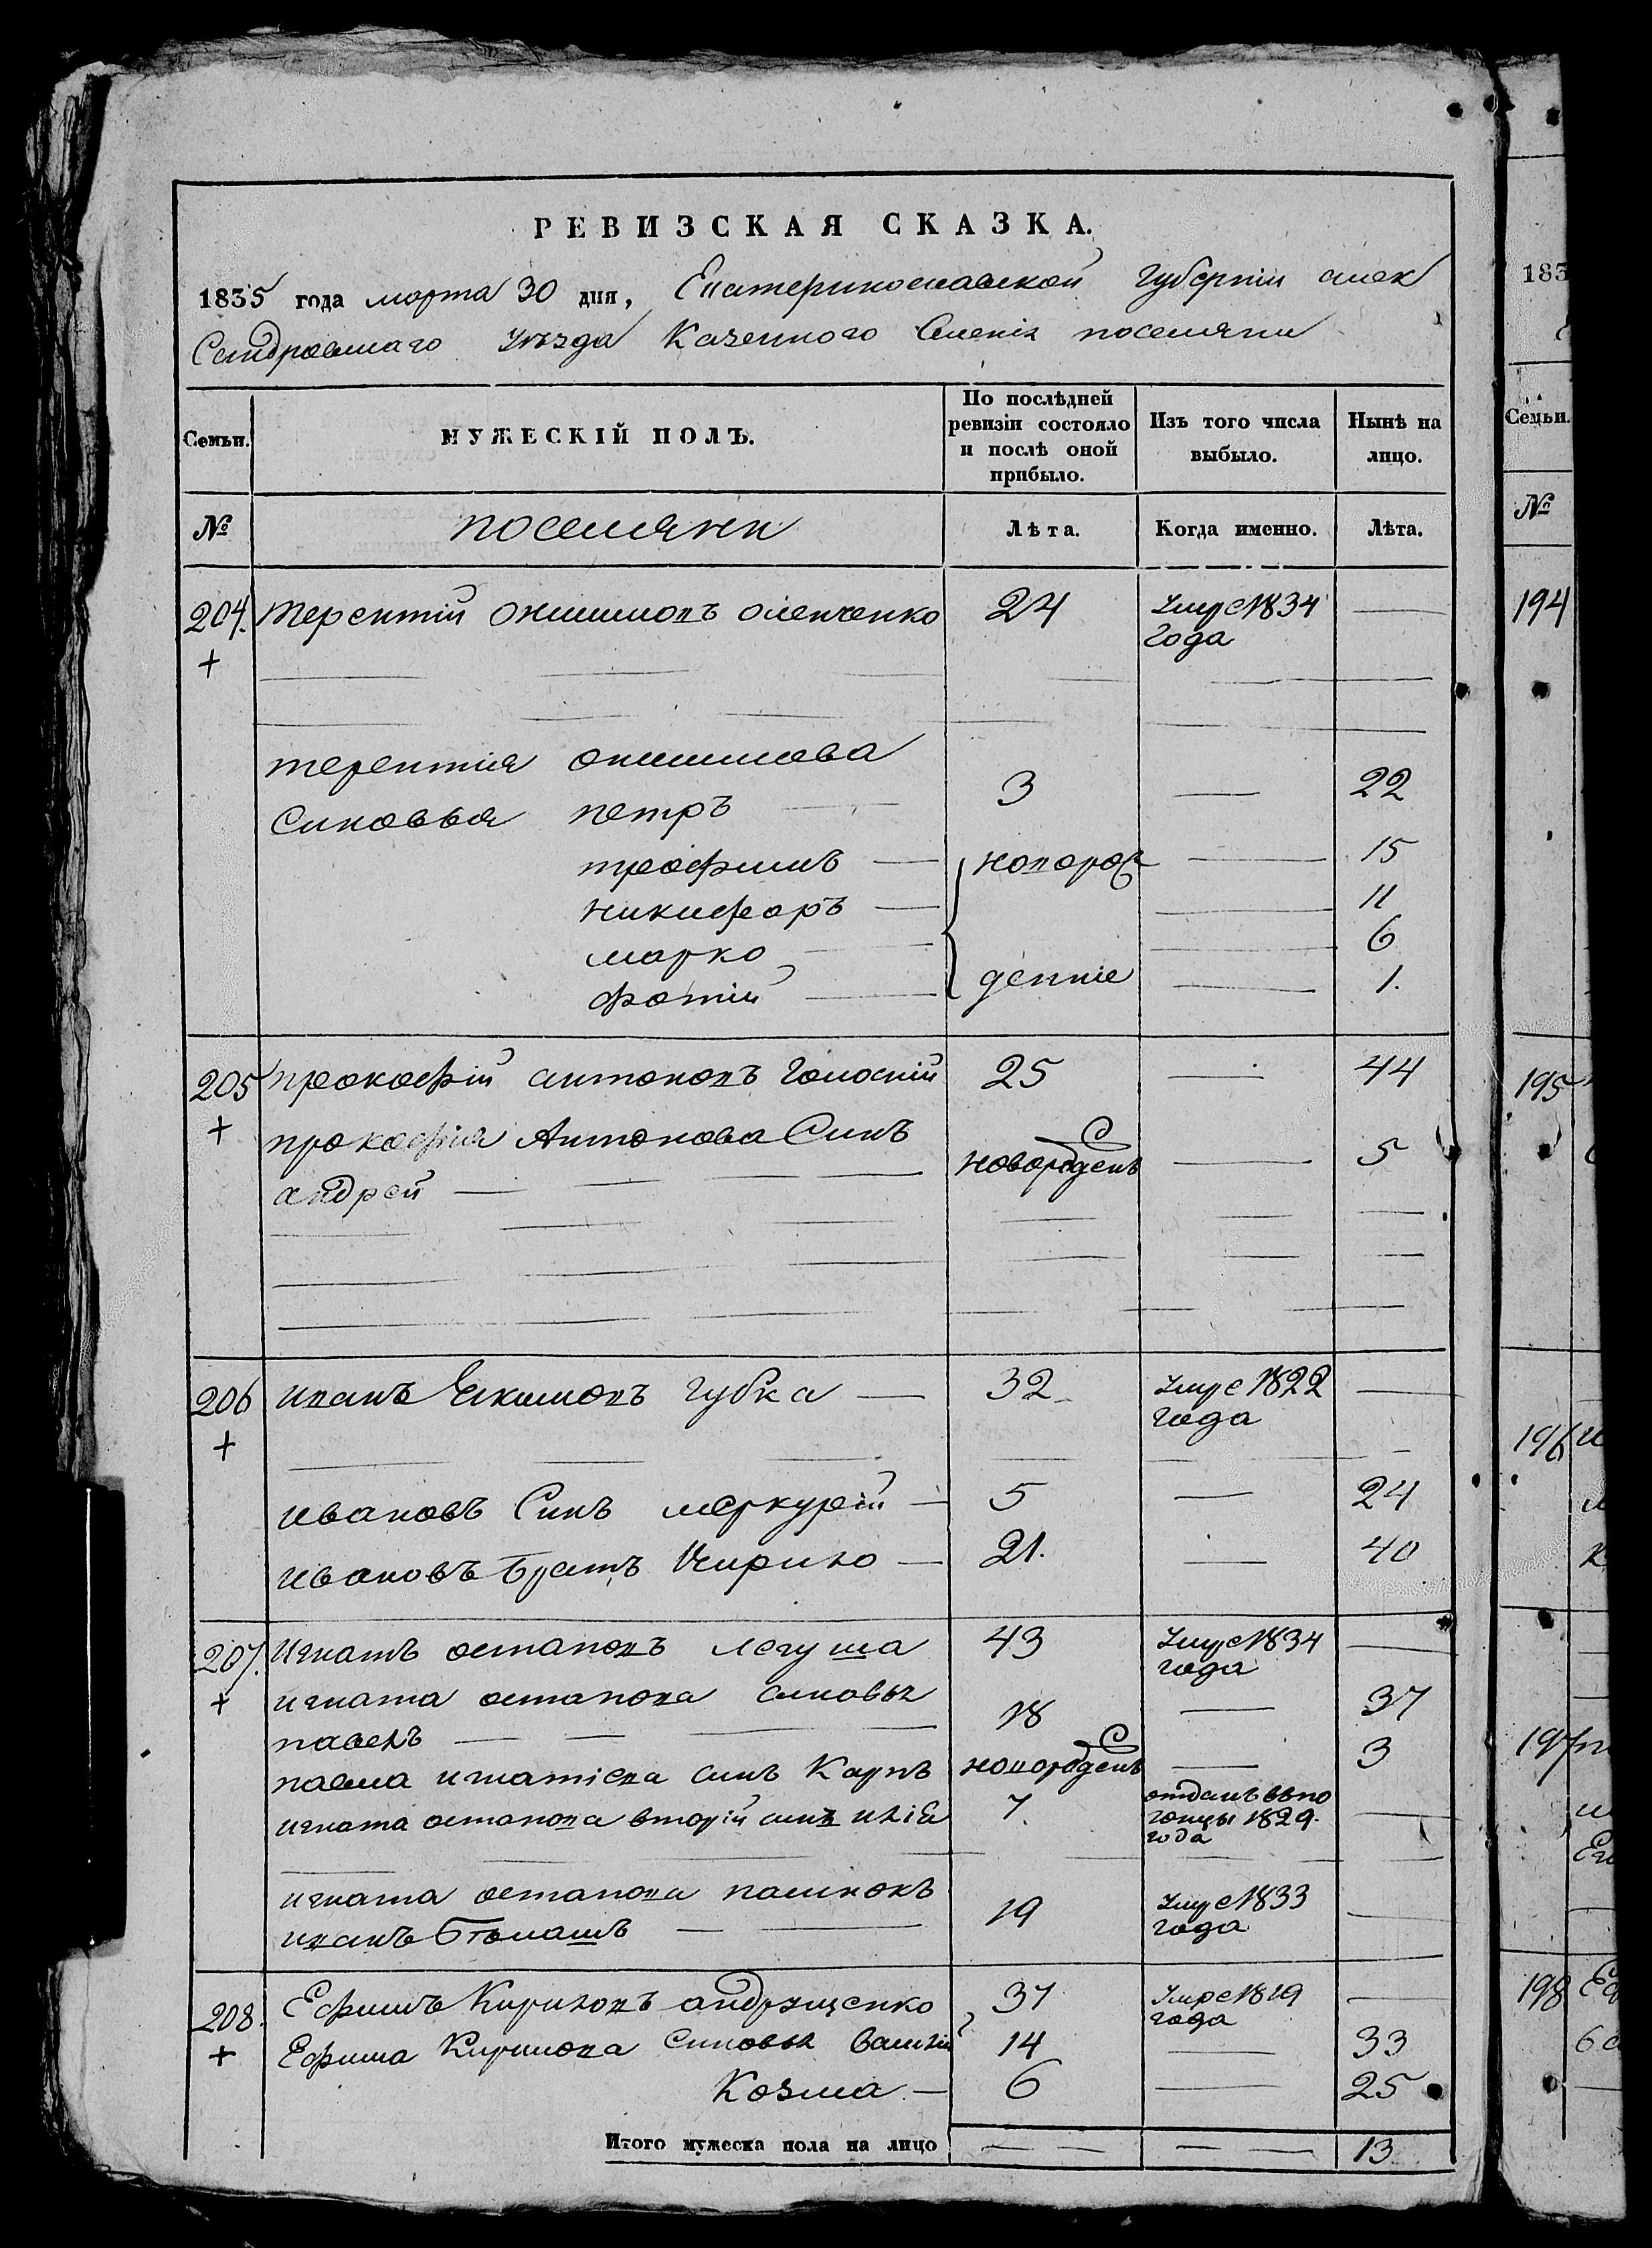 РЕВИЗСКАЯ СКАЗКА.
1835 года марта 30 дня, Екатеринославской Губернии алек
Сандровскаго уѣзда Казенного Селенія поселяни
Семьи. МУЖЕСКІЙ ПОЛЪ. По послѣдней ревизіи состояло и послѣ оной прибыло. Изъ того числа выбыло. Нынѣ на лицо.
№ поселяни Лѣта. Когда именно. Лѣта.
204. терентій онисимовъ оленченко 24 умре 1834 года —
+
терентія онисимова
Синовья петръ 3 — 22
трофимъ — новорож — 15
никифоръ — — 11
марко — — 6
фотій — денніе — 1.
205 прокофій антоновъ Голоскій 25 — 44
+ прокофія Антонова Синъ
андрей — новорожденъ — 5
206 иванъ Екимовъ губка — 32 умре 1822 года —
+
ивановъ Синъ меркурій — 5 — 24
ивановъ братъ Кирило — 21. — 40
207. игнатъ остаповъ легуша 43 умре 1834 года —
+ игната остапова синовья
павелъ — 18 — 37
павла игнатіева синъ Карпъ новорожденъ — 3
игната остапова вторій синъ илія 7. отданъ въпо гонцы 1829. года —
игната остапова пасинокъ
иванъ 19 умре 1833 года —
208. Ефимъ Кириловъ андрущенко 37 умре 1819 года —
+ Ефима Кирилова Синовья Василій 14 — 33
Козма — 6 — 25
Итого мужеска пола на лицо — — — — 13
183
Семьи.
№
194
195
196
197
198